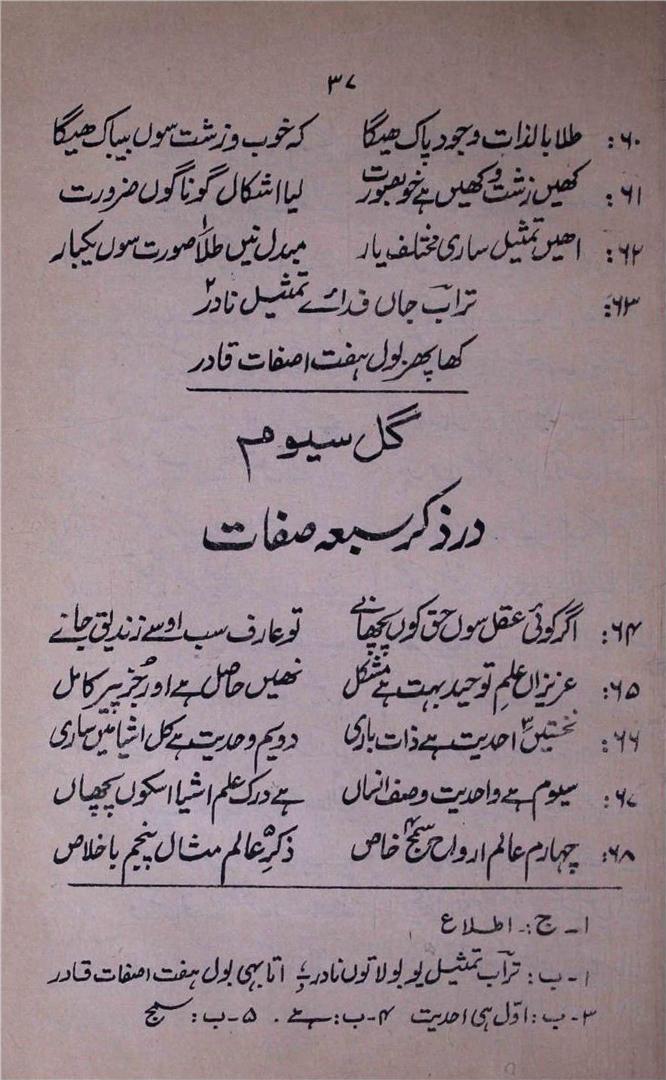 ۳۷
۶۰: طلا بالذات وجود پاک هیگا کہ خوب و زشت سوں بیباک هیگا
۶۱: کهیں زشت و کهیں ہے خوبصورت لیا اشکال گوناگوں ضرورت
۶۲: اهیں تمثیل ساری مختلف یار مبدل نیں طلا۱ صورت سوں یکبار
۶۳: ترابؔ جاں فدائے تمثیل نادر۲
کها پھر بول ہفت اصفات قادر
گل سیوم
در ذکر سبعہ صفات
۶۴: اگر کوئی عقل سوں حق کوں پچھانے تو عارف سب اوسے زندیق جانے
۶۵: عزیزاں علمِ توحید بہت ہے مشکل نهیں حاصل ہے اور جُز پیر کامل
۶۶: نخستیں۳ احدیت ہے ذات باری دویم وحدیت ہے کل اشیا میں ساری
۶۷: سیوم ہے واحدیت وصف انساں ہے درک علم اشیا اسکوں پچھاں
۶۸: چہارم عالم ارواح سمج۴ خاص ذکرِ۵ عالم مثال پنجم باخلاص
۱۔ ج:۔ اطلاع
۱۔ ب: ترابؔ تمثیل یو بولا توں نادر؛ اتا بہی بول ہفت اصفات قادر
۳۔ ب: اوّل ہی احدیت ۴۔ ب: ہے۔ ۵۔ ب: سمج